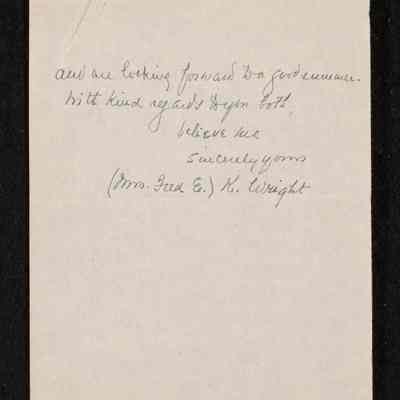 and are looking forward to a good summer.
With kind regards to you both,
believe me
Sincerely yours
(Mrs. Fred E.) K. Wright